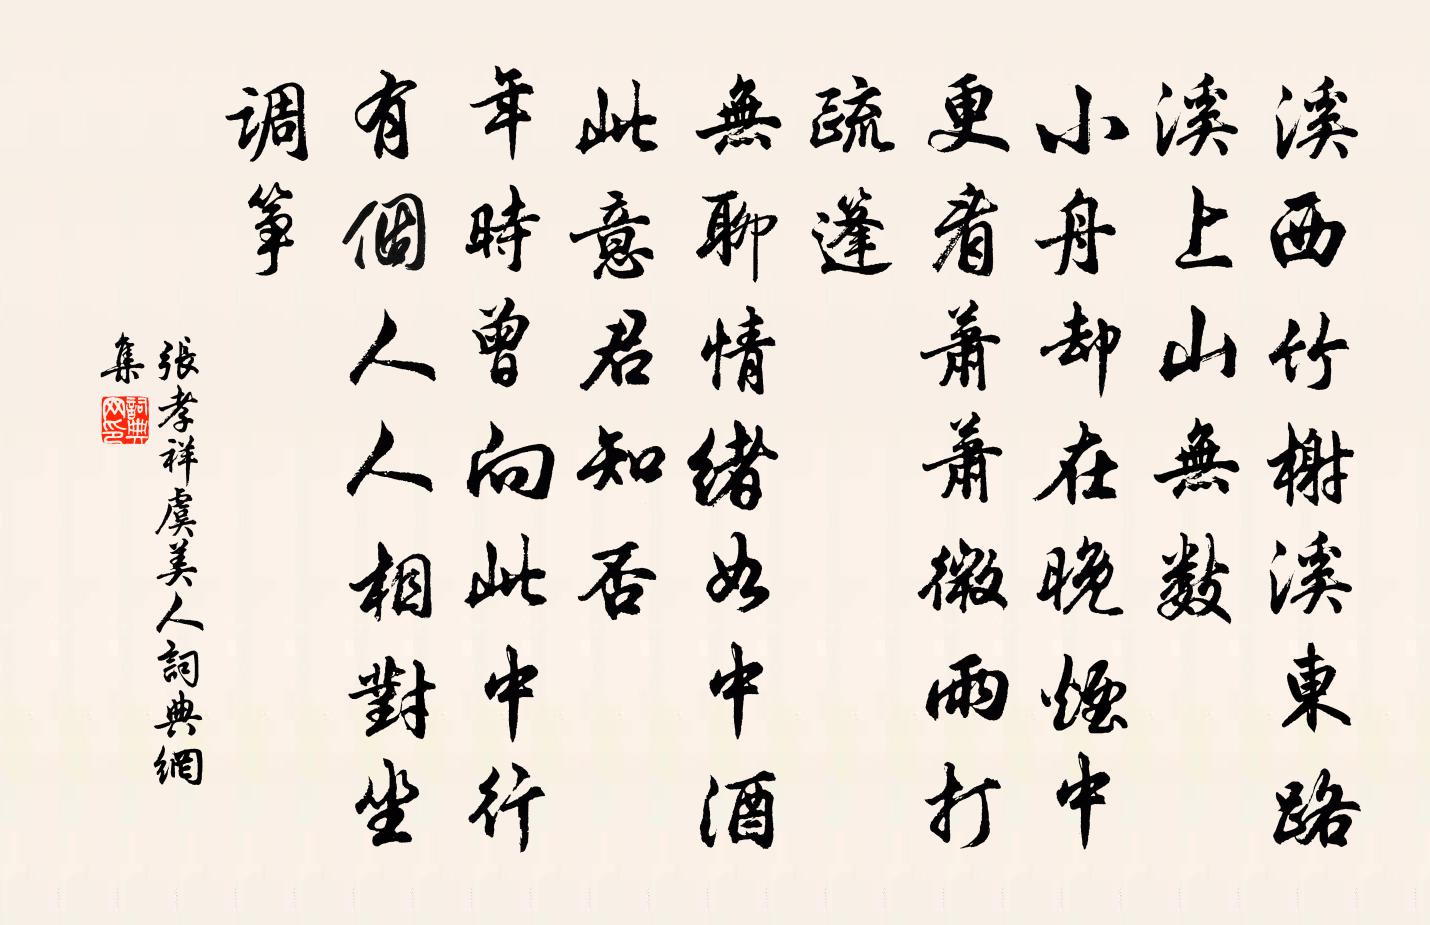 溪西竹榭溪東路
溪上山無數
小舟却在晚煙中
更看蕭蕭微雨打
疏蓬
無聊情緒如中酒
此意君知否
年時曾向此中行
有個人人相對坐
调筝
張孝祥虞美人詞典網
集
詞典
网印